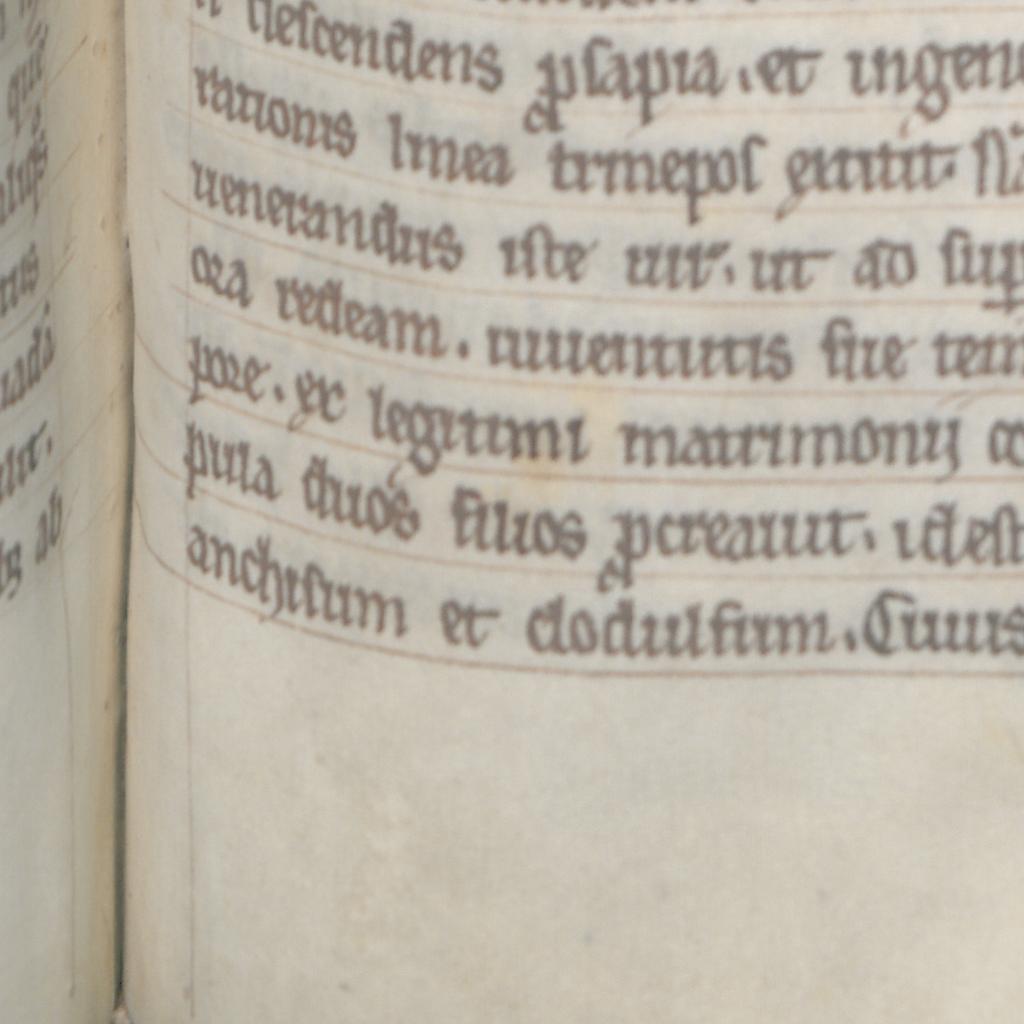 descendens ꝓsapia. et ingen
rationis linea trinepos emitit.
uenerandus iste uir. ut ad sup
ora redeam. iuuentutis sue tem
pore. ex legitimi matrimonij co
pula duos filios ꝓcreauit. idest
anchisum et clodulfum. Cuius